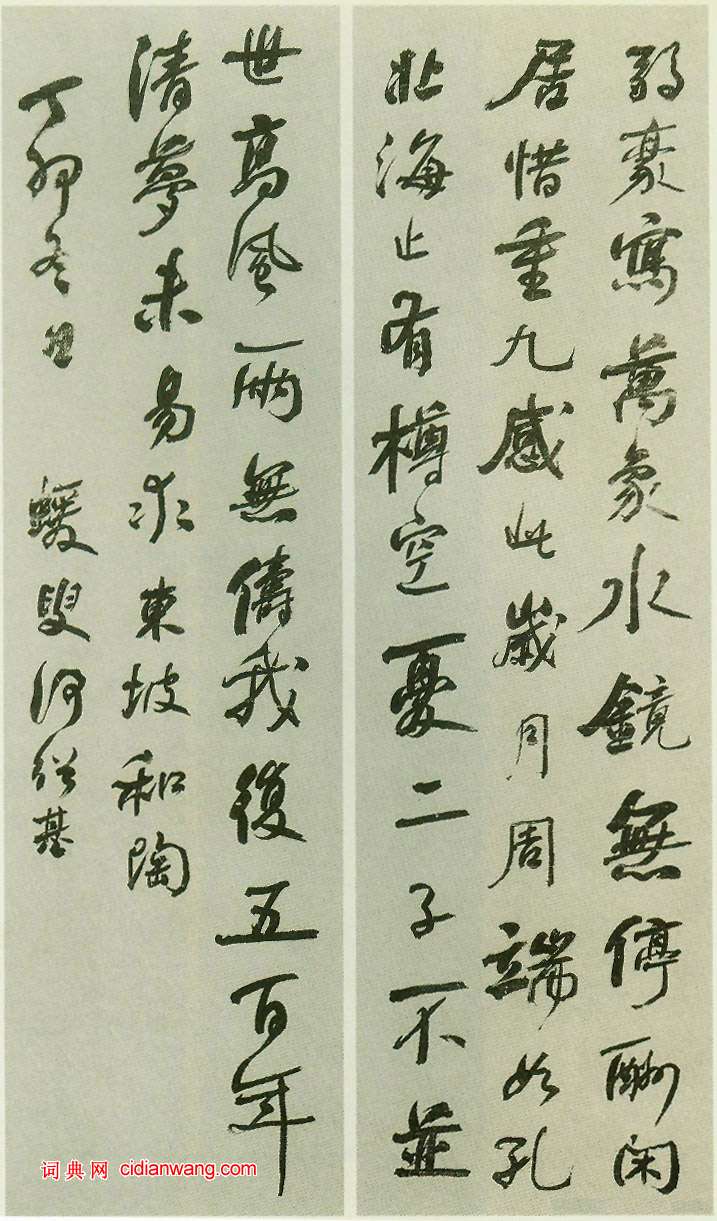 弱豪寫萬象水鏡無停酬閑
居惜重九感此歲月周端如孔
北海止有樽空憂二子不並
世高風兩無儔我復五百年
清夢未易求東坡和陶
丁卯冬日 蝯叟何紹基
词典网 cidianwang.com